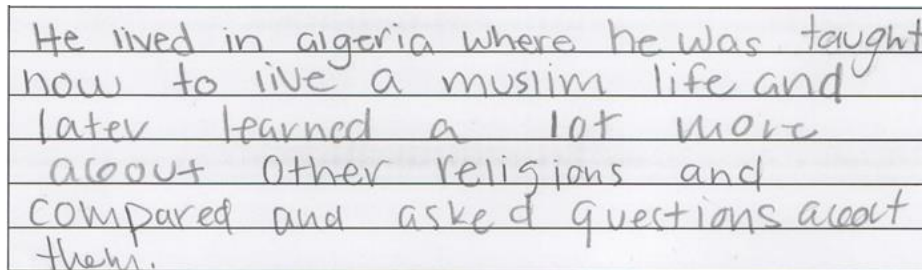 He lived in algeria where he was taught
how to live a muslim life and
later learned a lot more
about other religions and
compared and asked questions about
them.